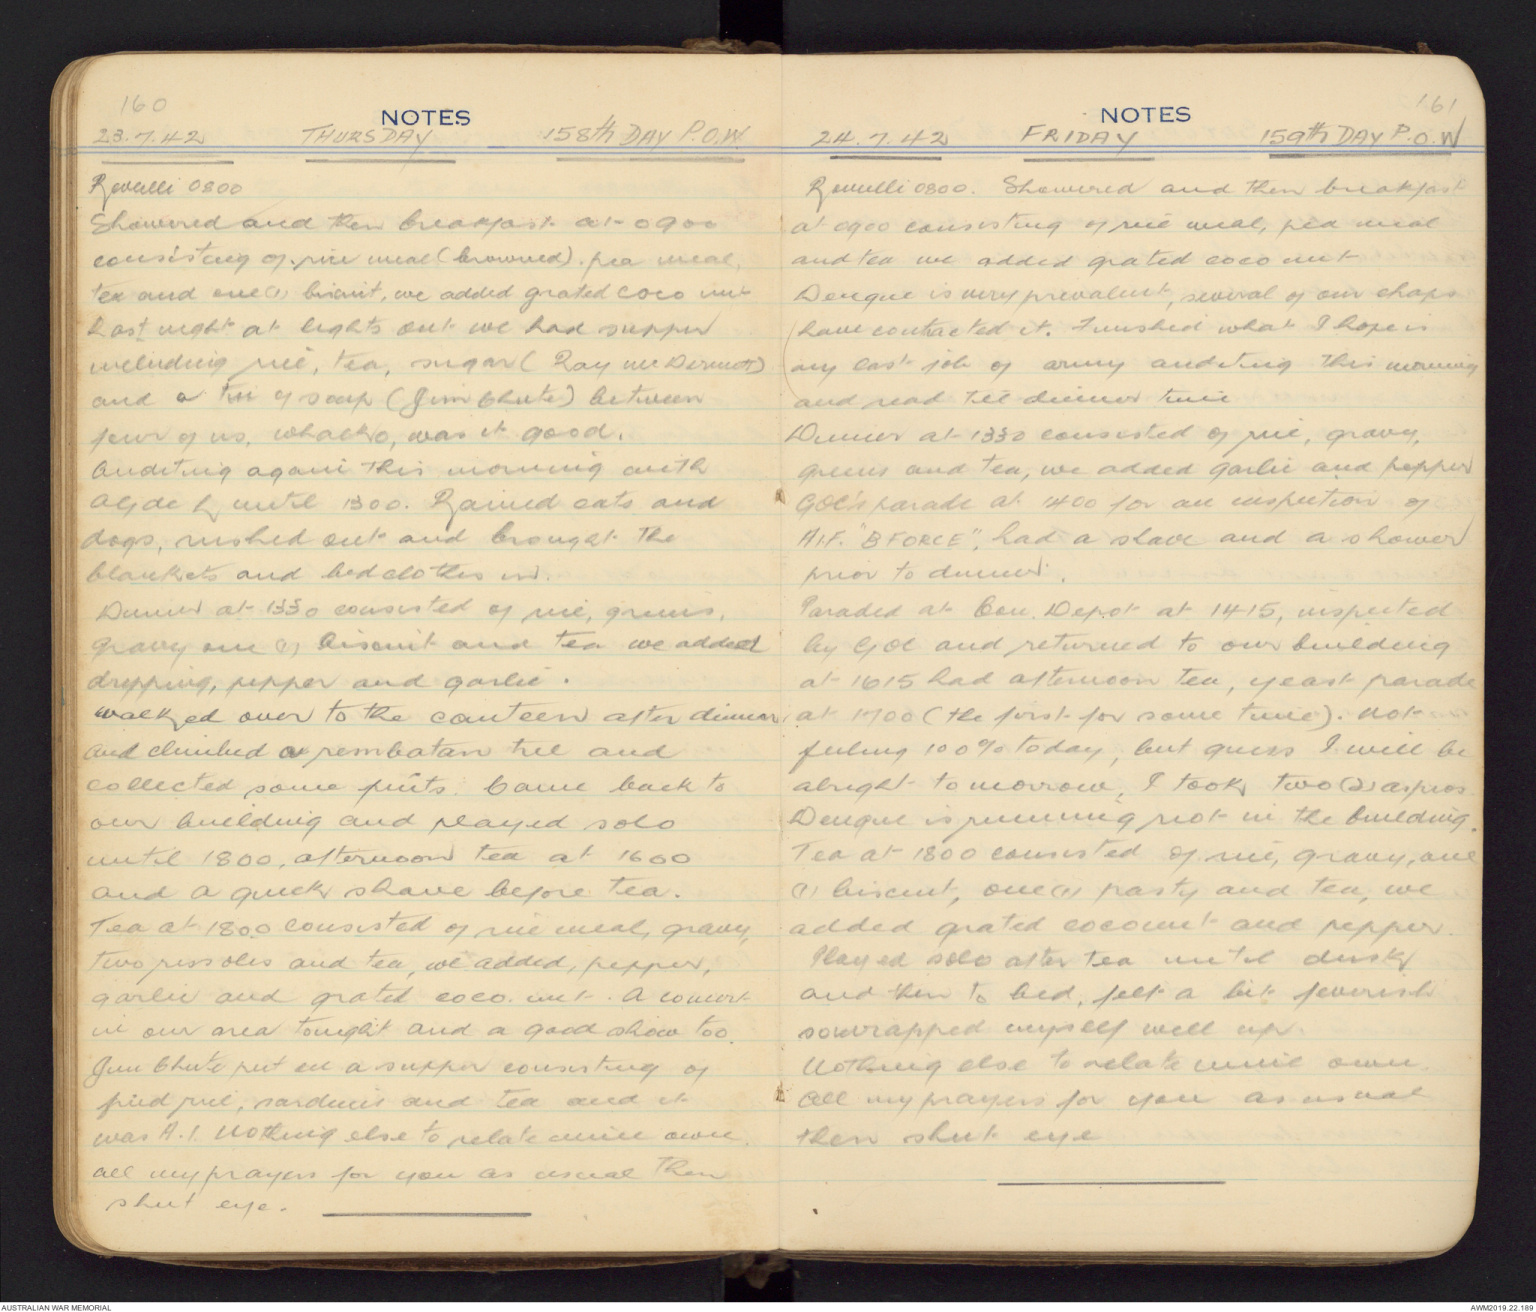 160
NOTES
23.7.42 THURSDAY 158th DAY P.O.W
Revelli 0800
Showered and then breakfast at 0900
consisting of rice meal (browned). pea meal,
tea and one (1) biscuit, we added grated coco nut
Last night at lights out we had supper
including rice, tea, sugar (Ray McDermott)
and a tin of soup (Jim Chute) between
four of us, whacko, was it good.
Auditing again this morning with
Clyde L until 1300. Rained cats and
dogs, rushed out and brought the
blankets and bedclothes in.
Dinner at 1330 consisted of rice, greens,
gravy one (1) biscuit and tea we added
dripping, pepper and garlic.
Walked over to the canteen after dinner
and climbed a rembatan tree and
collected some fruits. Came back to
our building and played solo
until 1800, afternoon tea at 1600
and a quick shave before tea.
Tea at 1800 consisted of rice meal, gravy,
two rissoles and tea, we added, pepper,
garlic and grated coco. nut. A concert
in our area tonight and a good show too.
Jim Chute put on a supper consisting of
fried rice, sardines and tea and it
was A.1. Nothing else to relate mine own.
all my prayers for you as usual then
shut eye.
161
NOTES
24.7.42 FRIDAY 159th DAY P.O.W
Revelli 0800. Showered and then breakfast
at 0900 consisting of rice meal, pea meal
and tea we added grated coco nut
Dengue is very prevalent, several of our chaps
have contracted it. Finished what I hope is
my last job of army auditing this morning
and read till dinner time
Dinner at 1330 consisted of rice, gravy,
greens and tea, we added garlic and pepper
GOC's parade at 1400 for an inspection of
A.I.F. "B FORCE", had a shave and a shower
prior to dinner.
Paraded at Con. Depot at 1415, inspected
by GOC and returned to our building
at 1615 had afternoon tea, yeast parade
at 1700 (the first for some time). Not
feeling 100% today, but guess I will be
alright tomorrow, I took two (2) aspros
Dengue is running riot in the building.
Tea at 1800 consisted of rice, gravy, one
(1) biscuit, one (1) pasty and tea, we
added grated coconut and pepper.
Played solo after tea until dusk
and then to bed, felt a bit feverish
so wrapped myself well up.
Nothing else to relate mine own.
All my prayers for you as usual
then shut eye
AUSTRALIAN WAR MEMORIAL
AWM2019.22.189